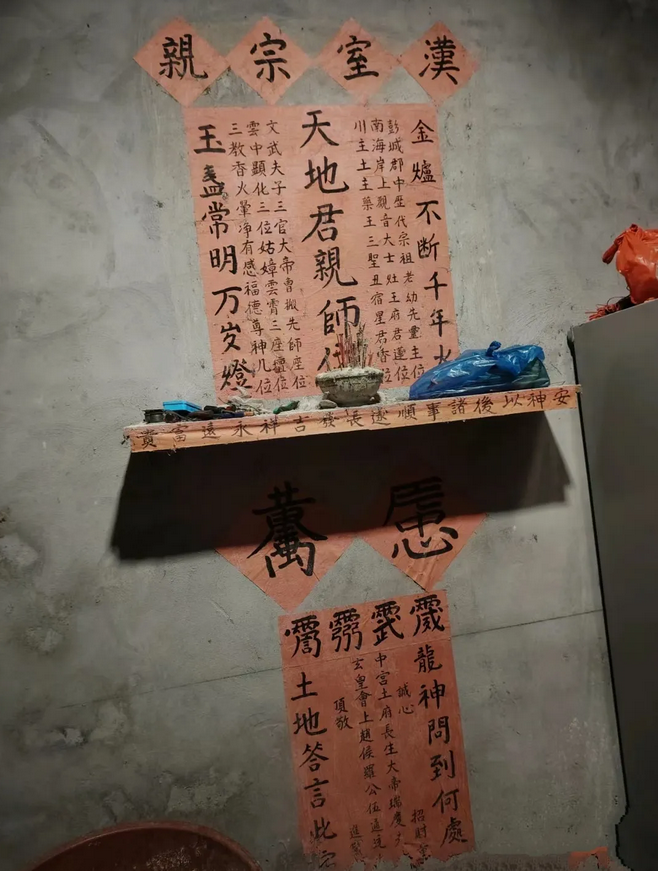 漢室宗親
金爐不断千年
彭城郡中歷代宗祖老幼先靈主位
南海岸上觀音大士灶王府君位
川主土主藥王三聖丑宿星君香位
天地君親師位
文武夫子三官大帝曾搬先師座位
雲中顯化三位姑嫜雲霄三座壇位
三教香火暈净有感福德尊神几位
玉盏常明万岁燈
安神以後諸事順遂長發吉祥永遠富貴
龍神問到何處
誠心 招財
中宮土府長生大帝瑞慶
玄皇會上趙候羅公伍通
頂敬 進
土地答言此